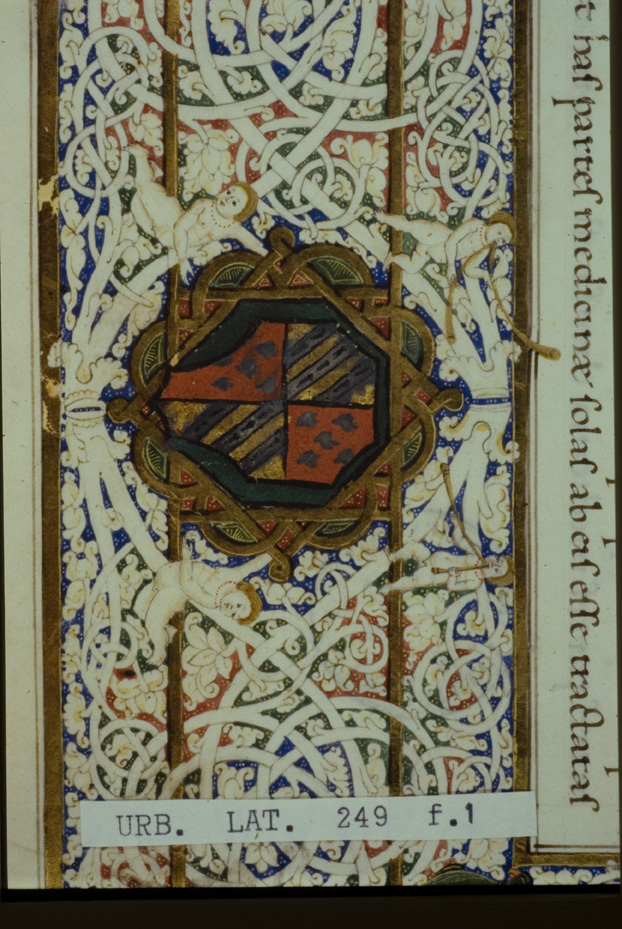 t haſ parteſ medicinæ ſolaſ ab eiſ eſſe tractataſ
URB. LAT. 249 f.1